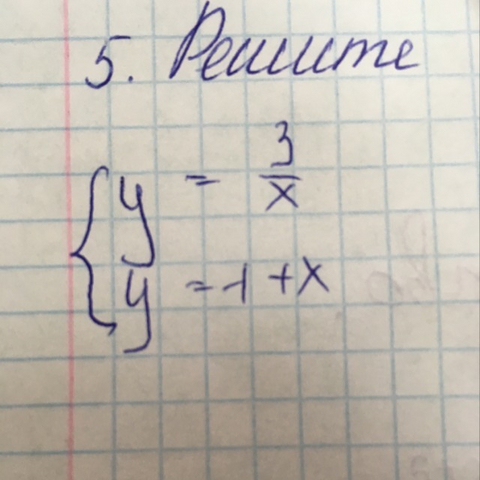 5. Решите
y = 3/x
y = -1 + x